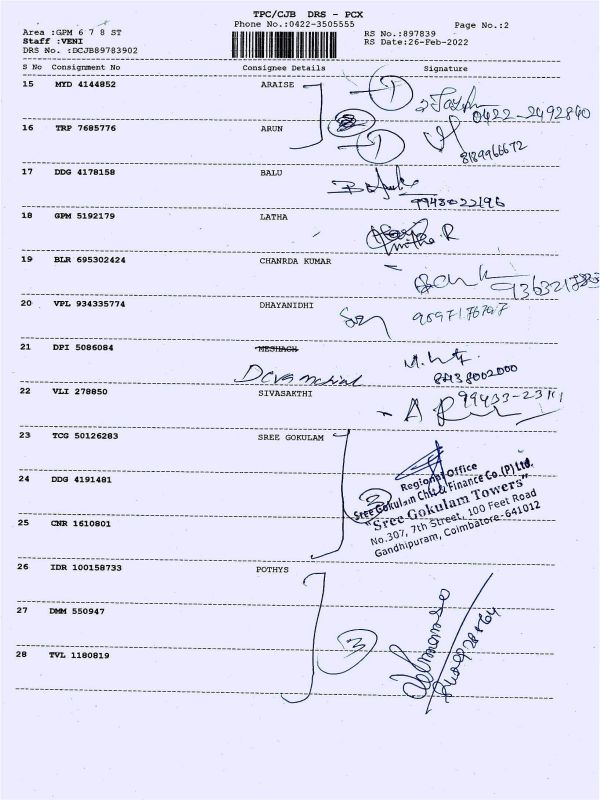 TPC/CJB DRS - PCX
Phone No.:0422-3505555
Page No.:2
Area :GPM 6 7 8 ST
Staff :VENI
DRS No. :DCJB89783902
RS No.:897839
RS Date:26-Feb-2022
S No Consignment No Consignee Details Signature
15 MYD 4144852 ARAISE 1
0422-2492840
16 TRP 7685776 ARUN 1
8189966672
17 DDG 4178158 BALU
9943022196
18 GPM 5192179 LATHA
19 BLR 695302424 CHANRDA KUMAR
20 VPL 934335774 DHAYANIDHI
21 DPI 5086084 MESHACH
8438002000
22 VLI 278850 SIVASAKTHI
23 TCG 50126283 SREE GOKULAM
24 DDG 4191481 3
Regional Office
Sree Gokulam Chit & Finance Co.(P) Ltd.
"Sree Gokulam Towers"
No.307, 7th Street, 100 Feet Road
Gandhipuram, Coimbatore-641012
25 CNR 1610801
26 IDR 100158733 POTHYS
27 DMM 550947 3
28 TVL 1180819